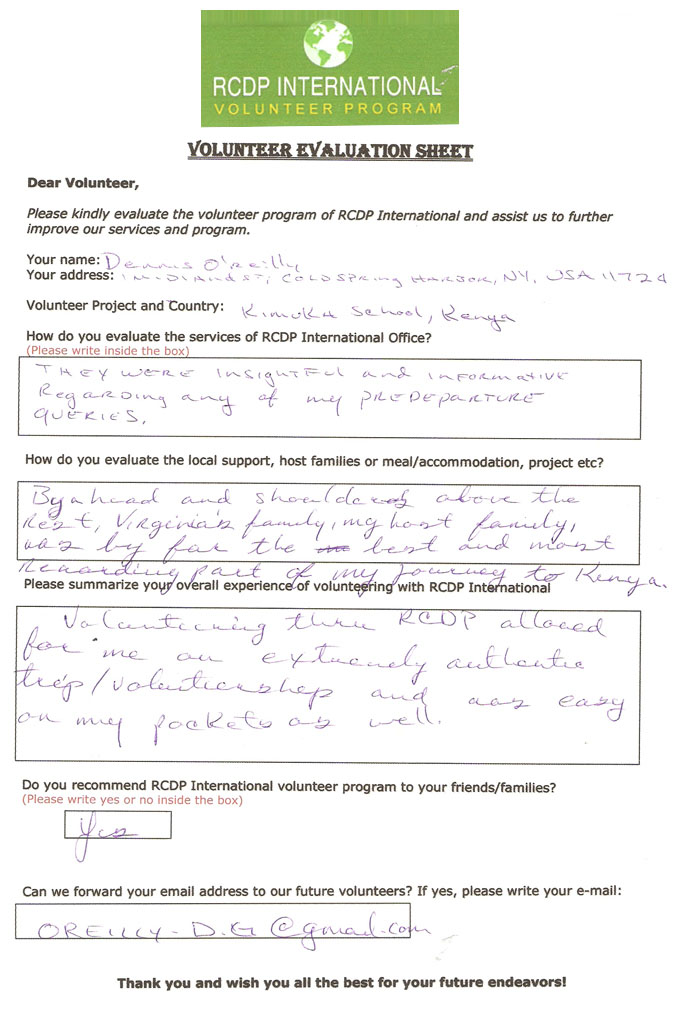 RCDP INTERNATIONAL
VOLUNTEER PROGRAM
VOLUNTEER EVALUATION SHEET
Dear Volunteer,
Please kindly evaluate the volunteer program of RCDP International and assist us to further
improve our services and program.
Your name: Dennis O'Reilly
Your address: 1 MIDLAND ST; COLD SPRING HARBOR, NY, USA 11724
Volunteer Project and Country: KIMUKA School, Kenya
How do you evaluate the services of RCDP International Office?
(Please write inside the box)
THEY WERE INSIGHTFUL and INFORMATIVE
Regarding any of my PREDEPARTURE
QUERIES.
How do you evaluate the local support, host families or meal/accommodation, project etc?
By a head and shoulders above the
Rest, Virginia's family, my host family,
was by far the best and most
rewarding part of my journey to Kenya.
Please summarize your overall experience of volunteering with RCDP International
Volunteering thru RCDP allowed
for me an extremely authentic
trip/volunteership and was easy
on my pockets as well.
Do you recommend RCDP International volunteer program to your friends/families?
(Please write yes or no inside the box)
Yes
Can we forward your email address to our future volunteers? If yes, please write your e-mail:
OREILLY-D.G@gmail.com
Thank you and wish you all the best for your future endeavors!